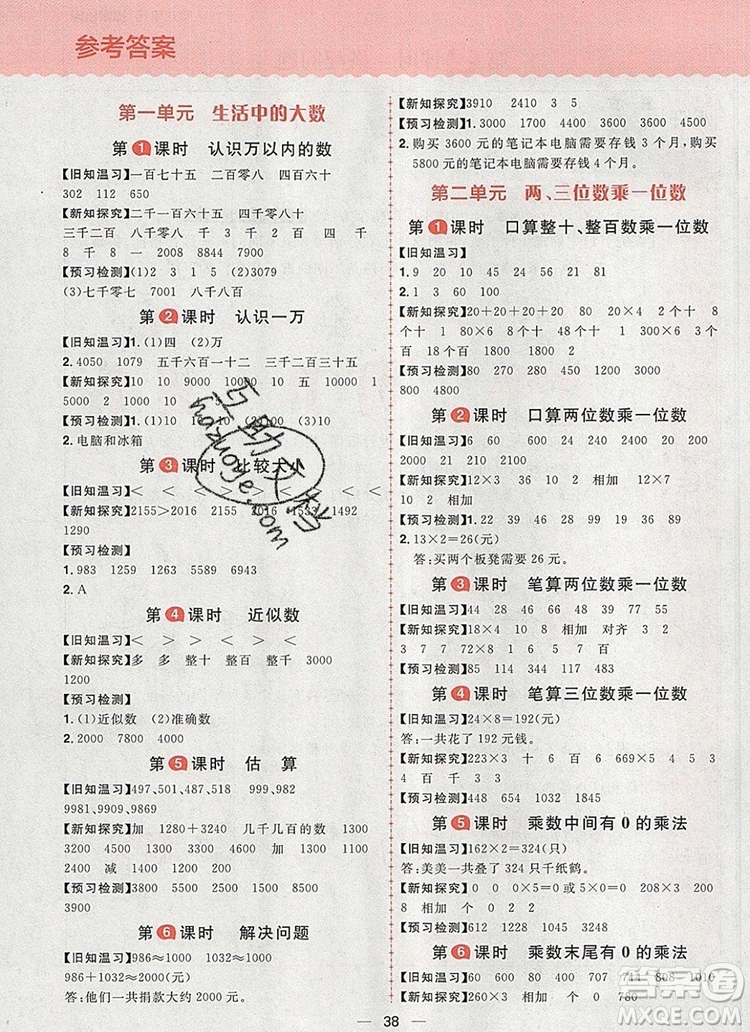 参考答案
第一单元 生活中的大数
第1课时 认识万以内的数
【旧知温习】一百七十五 二百零八 四百六十
302 112 650
【新知探究】二千一百五十 二千四百六十
三千二百 八百八十 九千零七 七千零八十 4
千 8 千 8 一 2008 8844 7900
【预习检测】(1)2 3 1 5 (2)3079
(3)七千零七 7007 八千八百
第2课时 认识一万
【旧知温习】1.(1)四 (2)万
2.4050 1079 五千六百一十二 三千二百三十五
【新知探究】10 10 9000 10000 10 10 1
5000 1000 2 5 10000
【预习检测】1.(1)10 (2)9000 (3)10
2.电脑和冰箱
第3课时 比较大小
【旧知温习】＜ ＜ ＜ ＜ ＜ ＜
【新知探究】2155>2016 2155 2016 1533 1492
1290
【预习检测】
1.983 1259 1235 3529 5329
2.A
第4课时 近似数
【旧知温习】＜ ＞ ＞ ＞ ＜ ＜
【新知探究】多 多 整十 整百 整千 3000
1200
【预习检测】
1.(1)近似数 (2)准确数
2.2000 7800 4000
第5课时 估 算
【旧知温习】497,501,487,518 999,982
9981,9909,9960
【新知探究】加 1280+3240 几千几百的数 1300
3200 4500 1300 3200 1300 3200
2400 减 1400 1200 2600
【预习检测】5500 5200 8000 8000 3500
3900
第6课时 解决问题
【旧知温习】986≈1000 1032≈1000
986+1032≈2000(元)
答:他们一共捐款大约2000元。
【新知探究】3910 2410 3 5
【预习检测】1.3000 1700 4000 3300 7000
2.购买3600元的笔记本电脑需要存钱3个月,购买
5800元的笔记本电脑需要存钱4个月。
第二单元 两、三位数乘一位数
第1课时 口算整十、整百数乘一位数
【旧知温习】
1.9 20 10 45 24 56 81
2.1 3 60 100
【新知探究】20+20+20+20 20×4 8 个 十
8 个 十 1 80×6 80 480 480
【预习检测】80 270 280 1500 1200 3200
800 4800
第2课时 口算两位数乘一位数
【旧知温习】10 2 8 4 9 6
【新知探究】12×3 36 12×4 48 2 十 相加
10 2 相加
【预习检测】1.22 39 44 88 28 66
2.13×2=26(元)
答:买两个板凳需要26元。
第3课时 笔算两位数乘一位数
【旧知温习】44 28 46 66 48 39 55 88
【新知探究】18×4 10 8 相加 对齐 3 2
3 7 7 7 2 72 72 个 十
【预习检测】85 74 114 117 483
第4课时 笔算三位数乘一位数
【旧知温习】24×8=192(元)
答:一共花了192元钱。
【新知探究】223×3 十 6 6 百 669 273×5
4 百 千 6 3 1
【预习检测】448 654 1032 1845
第5课时 乘数中间有0的乘法
【旧知温习】162×2=324(只)
答:美美一共叠了324只千纸鹤。
【新知探究】0 0 0×5=0 5×0=0 208×3 3
个 0 十 2 0
【预习检测】
第6课时 乘数末尾有0的乘法
【旧知温习】60 600 80 400 707 714 808 1010
【新知探究】260×3 1 0 个 0 780
38